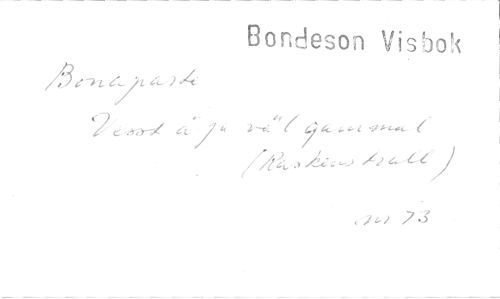 Bondeson Visbok
Bonaparte
Visst ä' ju väl gammal
(Raskens trall)
nr 73